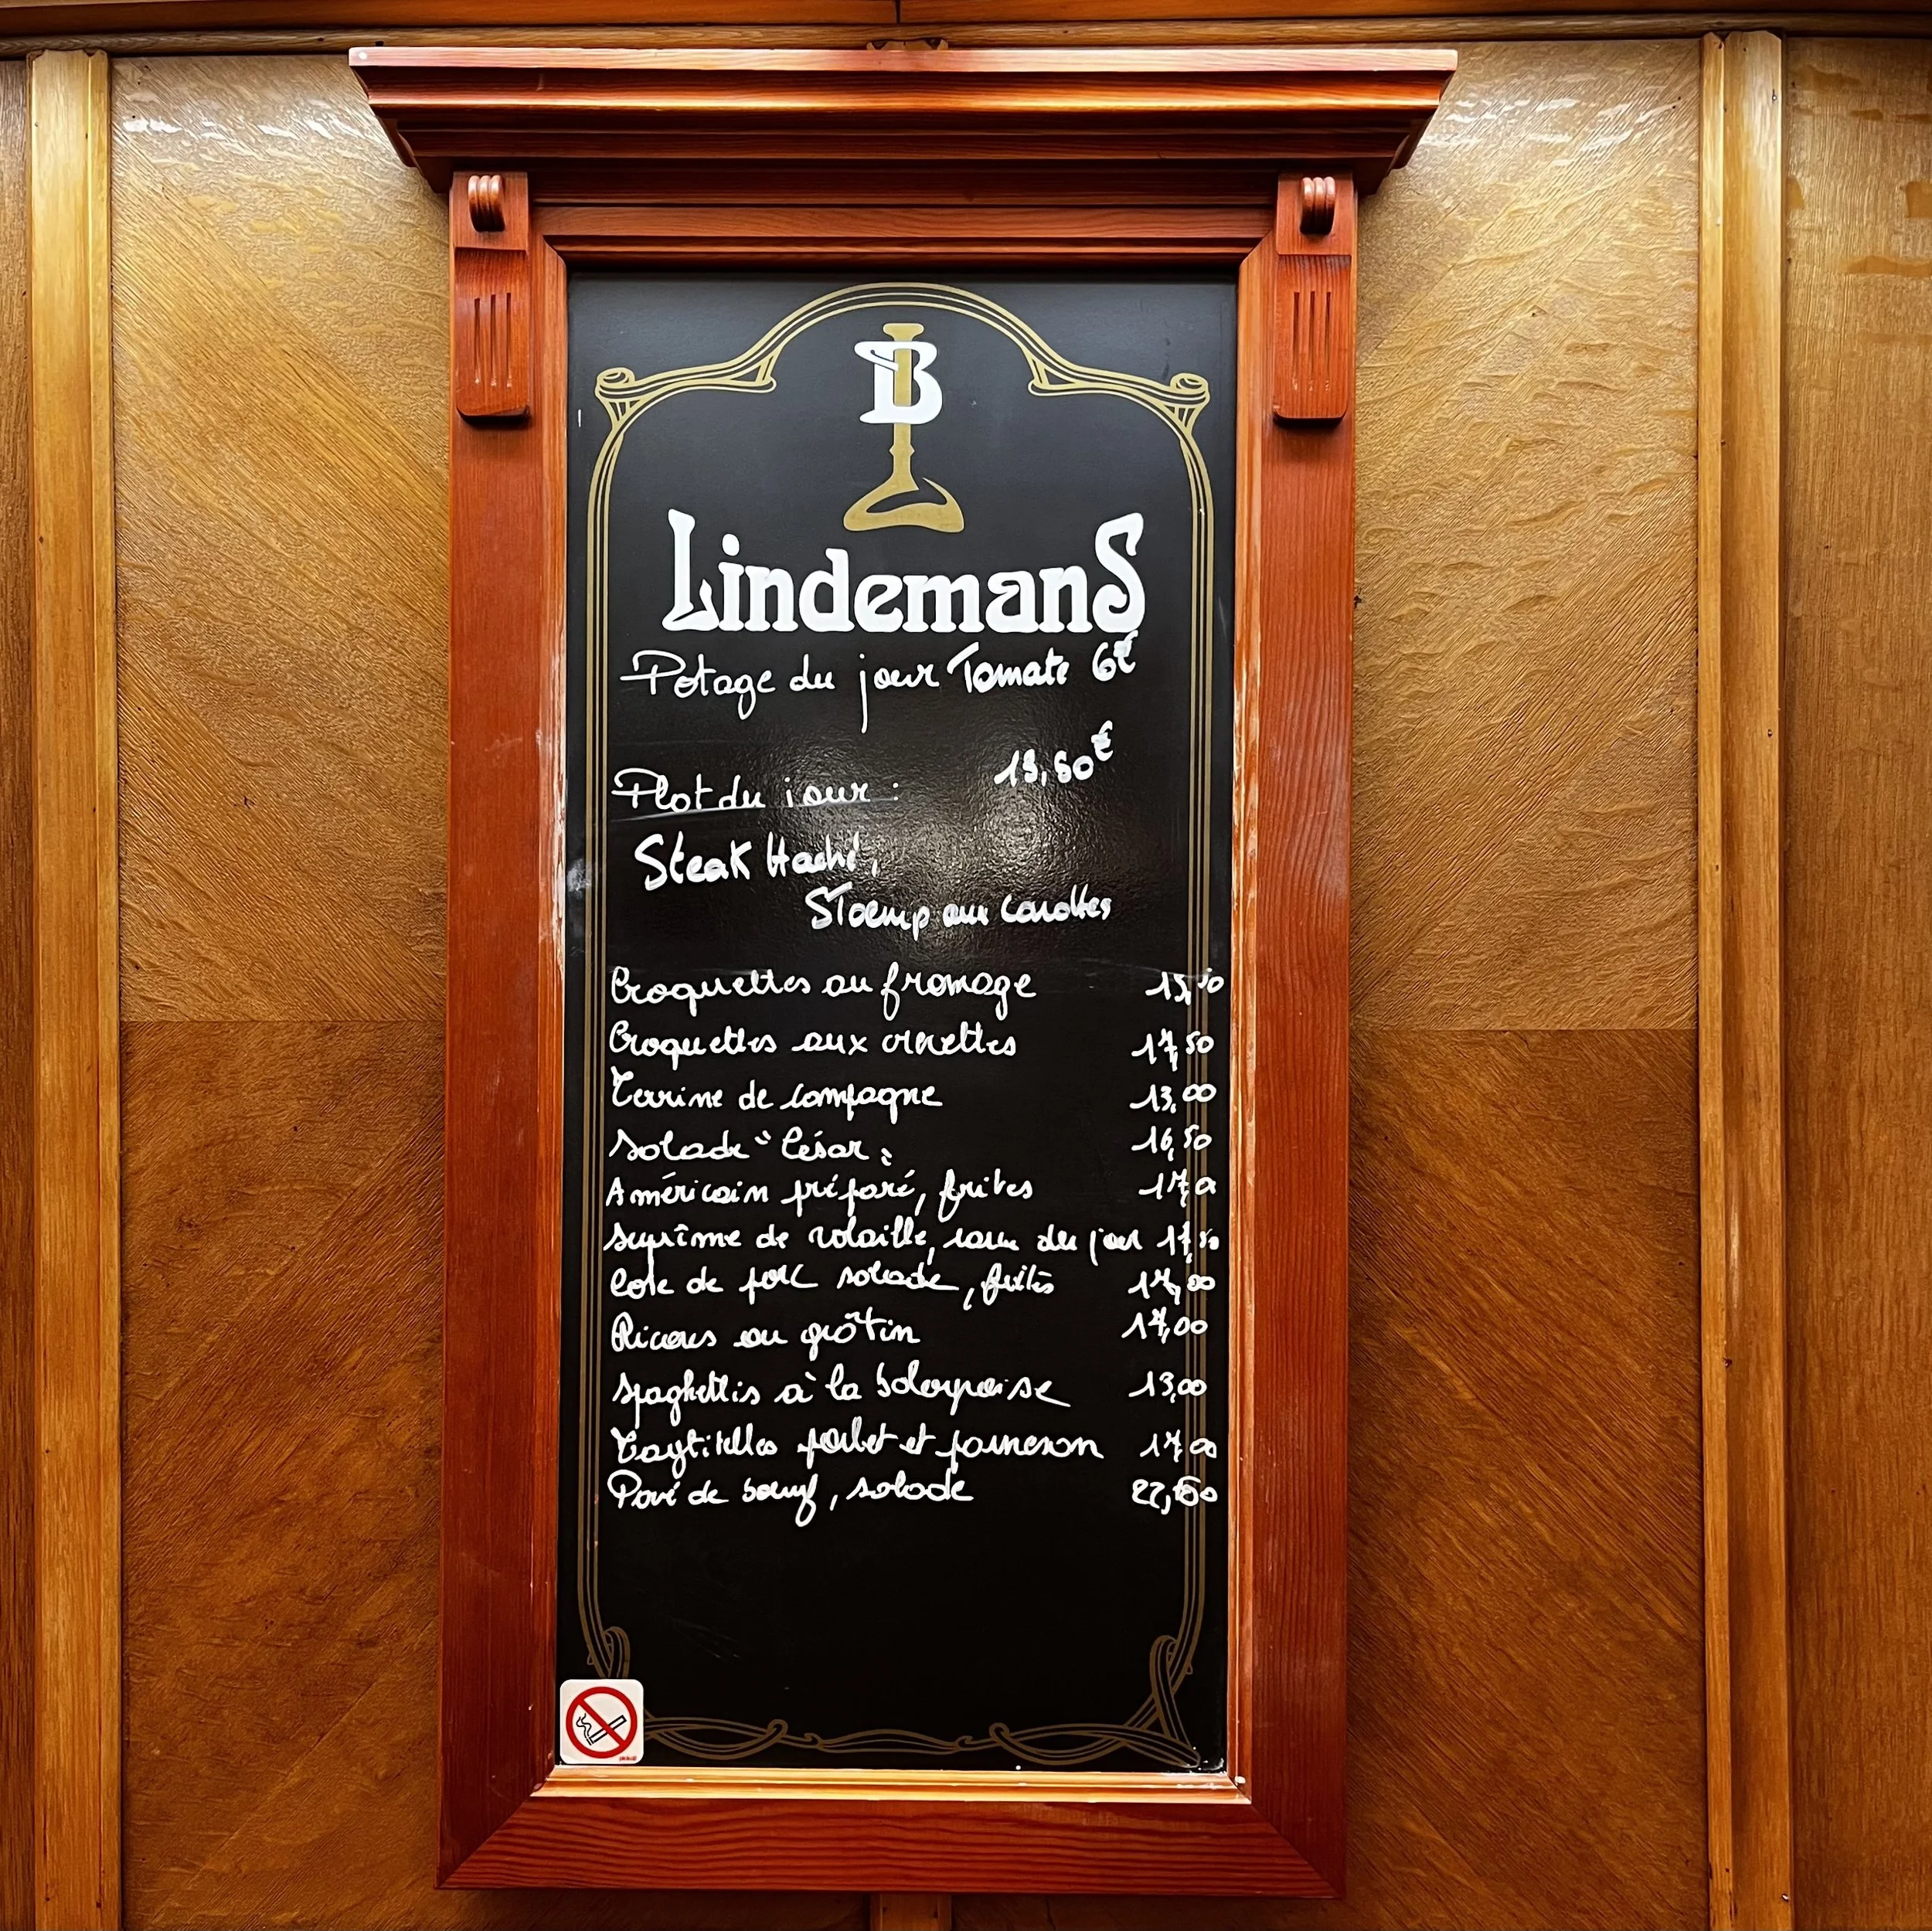 B
LindemanS
Potage du jour Tomate 6€
Plat du jour : 13,50€
Steak Haché,
Stoemp aux carottes
Croquettes au fromage 15,50
Croquettes aux crevettes 17,50
Terrine de campagne 13,00
Salade "César" 16,50
Américain préparé, frites 17,00
Suprême de volaille, sauce du jour 17,50
Cote de porc salade, frites 17,00
Ricours au grâtin 17,00
Spaghettis à la bolognaise 13,00
Tagliatelles poulet et parmesan 17,00
Pavé de boeuf, salade 22,50